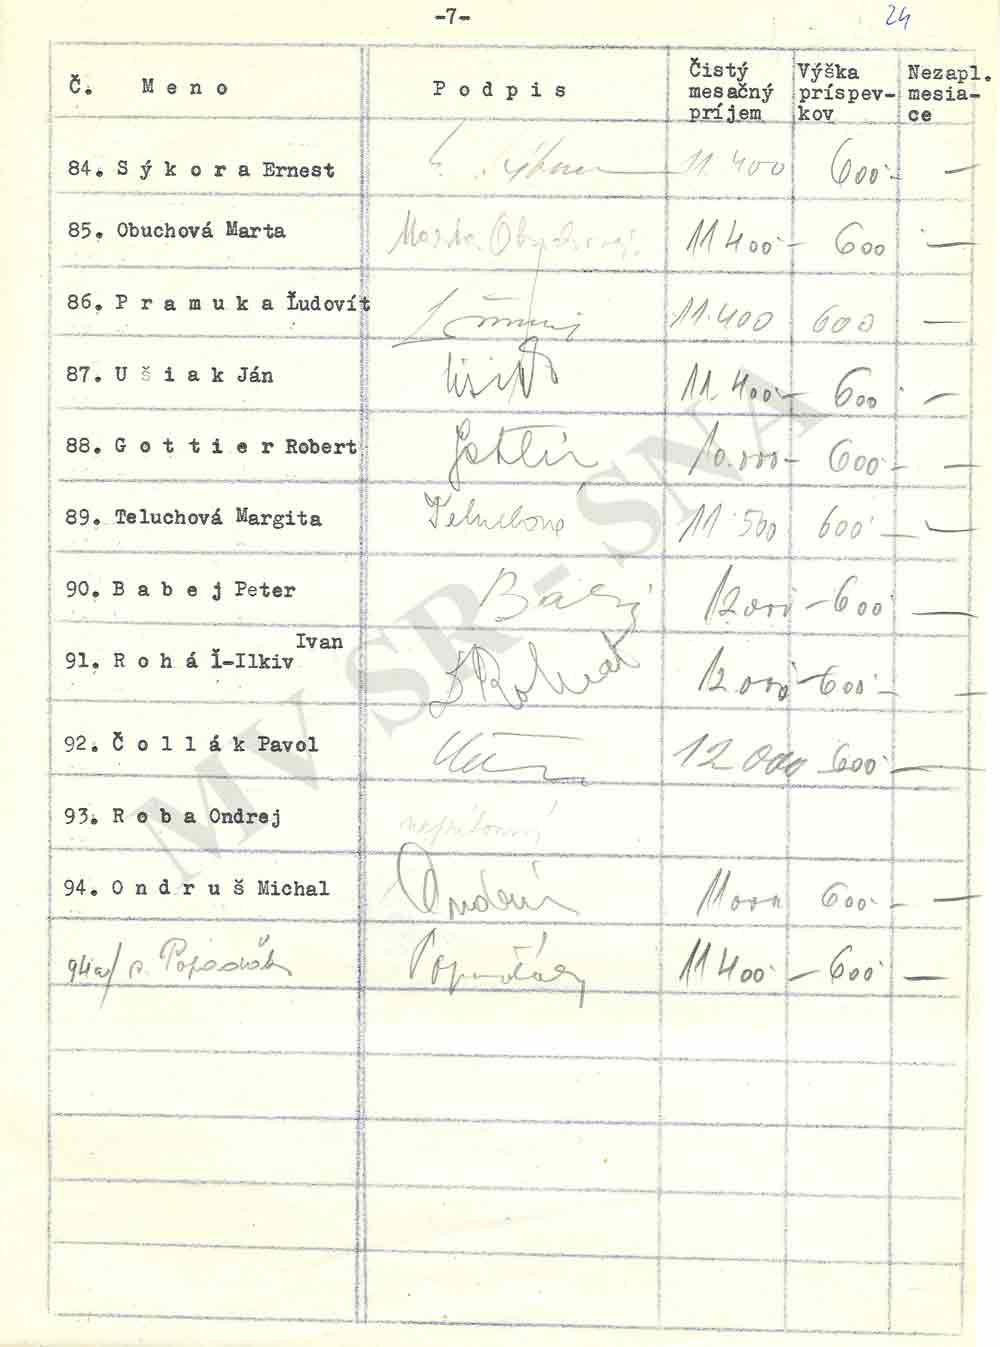 -7-
24
Č. M e n o
P o d p i s
Čistý
mesačný
príjem
Výška
príspev-
kov
Nezapl.
mesia-
ce
84. S ý k o r a Ernest 11.400 600.- —
85. Obuchová Marta Marta Obuchová 11 400 - 600 —
86. P r a m u k a Ľudovít 11.400 600 —
87. U š i a k Ján 11.400.- 600 —
88. G o t t i e r Robert 10.000- 600- —
89. Teluchová Margita Teluchová 11 500 600 —
90. B a b e j Peter 12000 - 600 —
Ivan
91. R o h á ľ-Ilkiv I Rohaľ 12000 - 600 —
92. Č o l l á k Pavol 12 000 600 —
93. R o b a Ondrej neprítomný
94. O n d r u š Michal 11000 600.- —
94a/ 11 400 - 600 —
MV SR - SNA